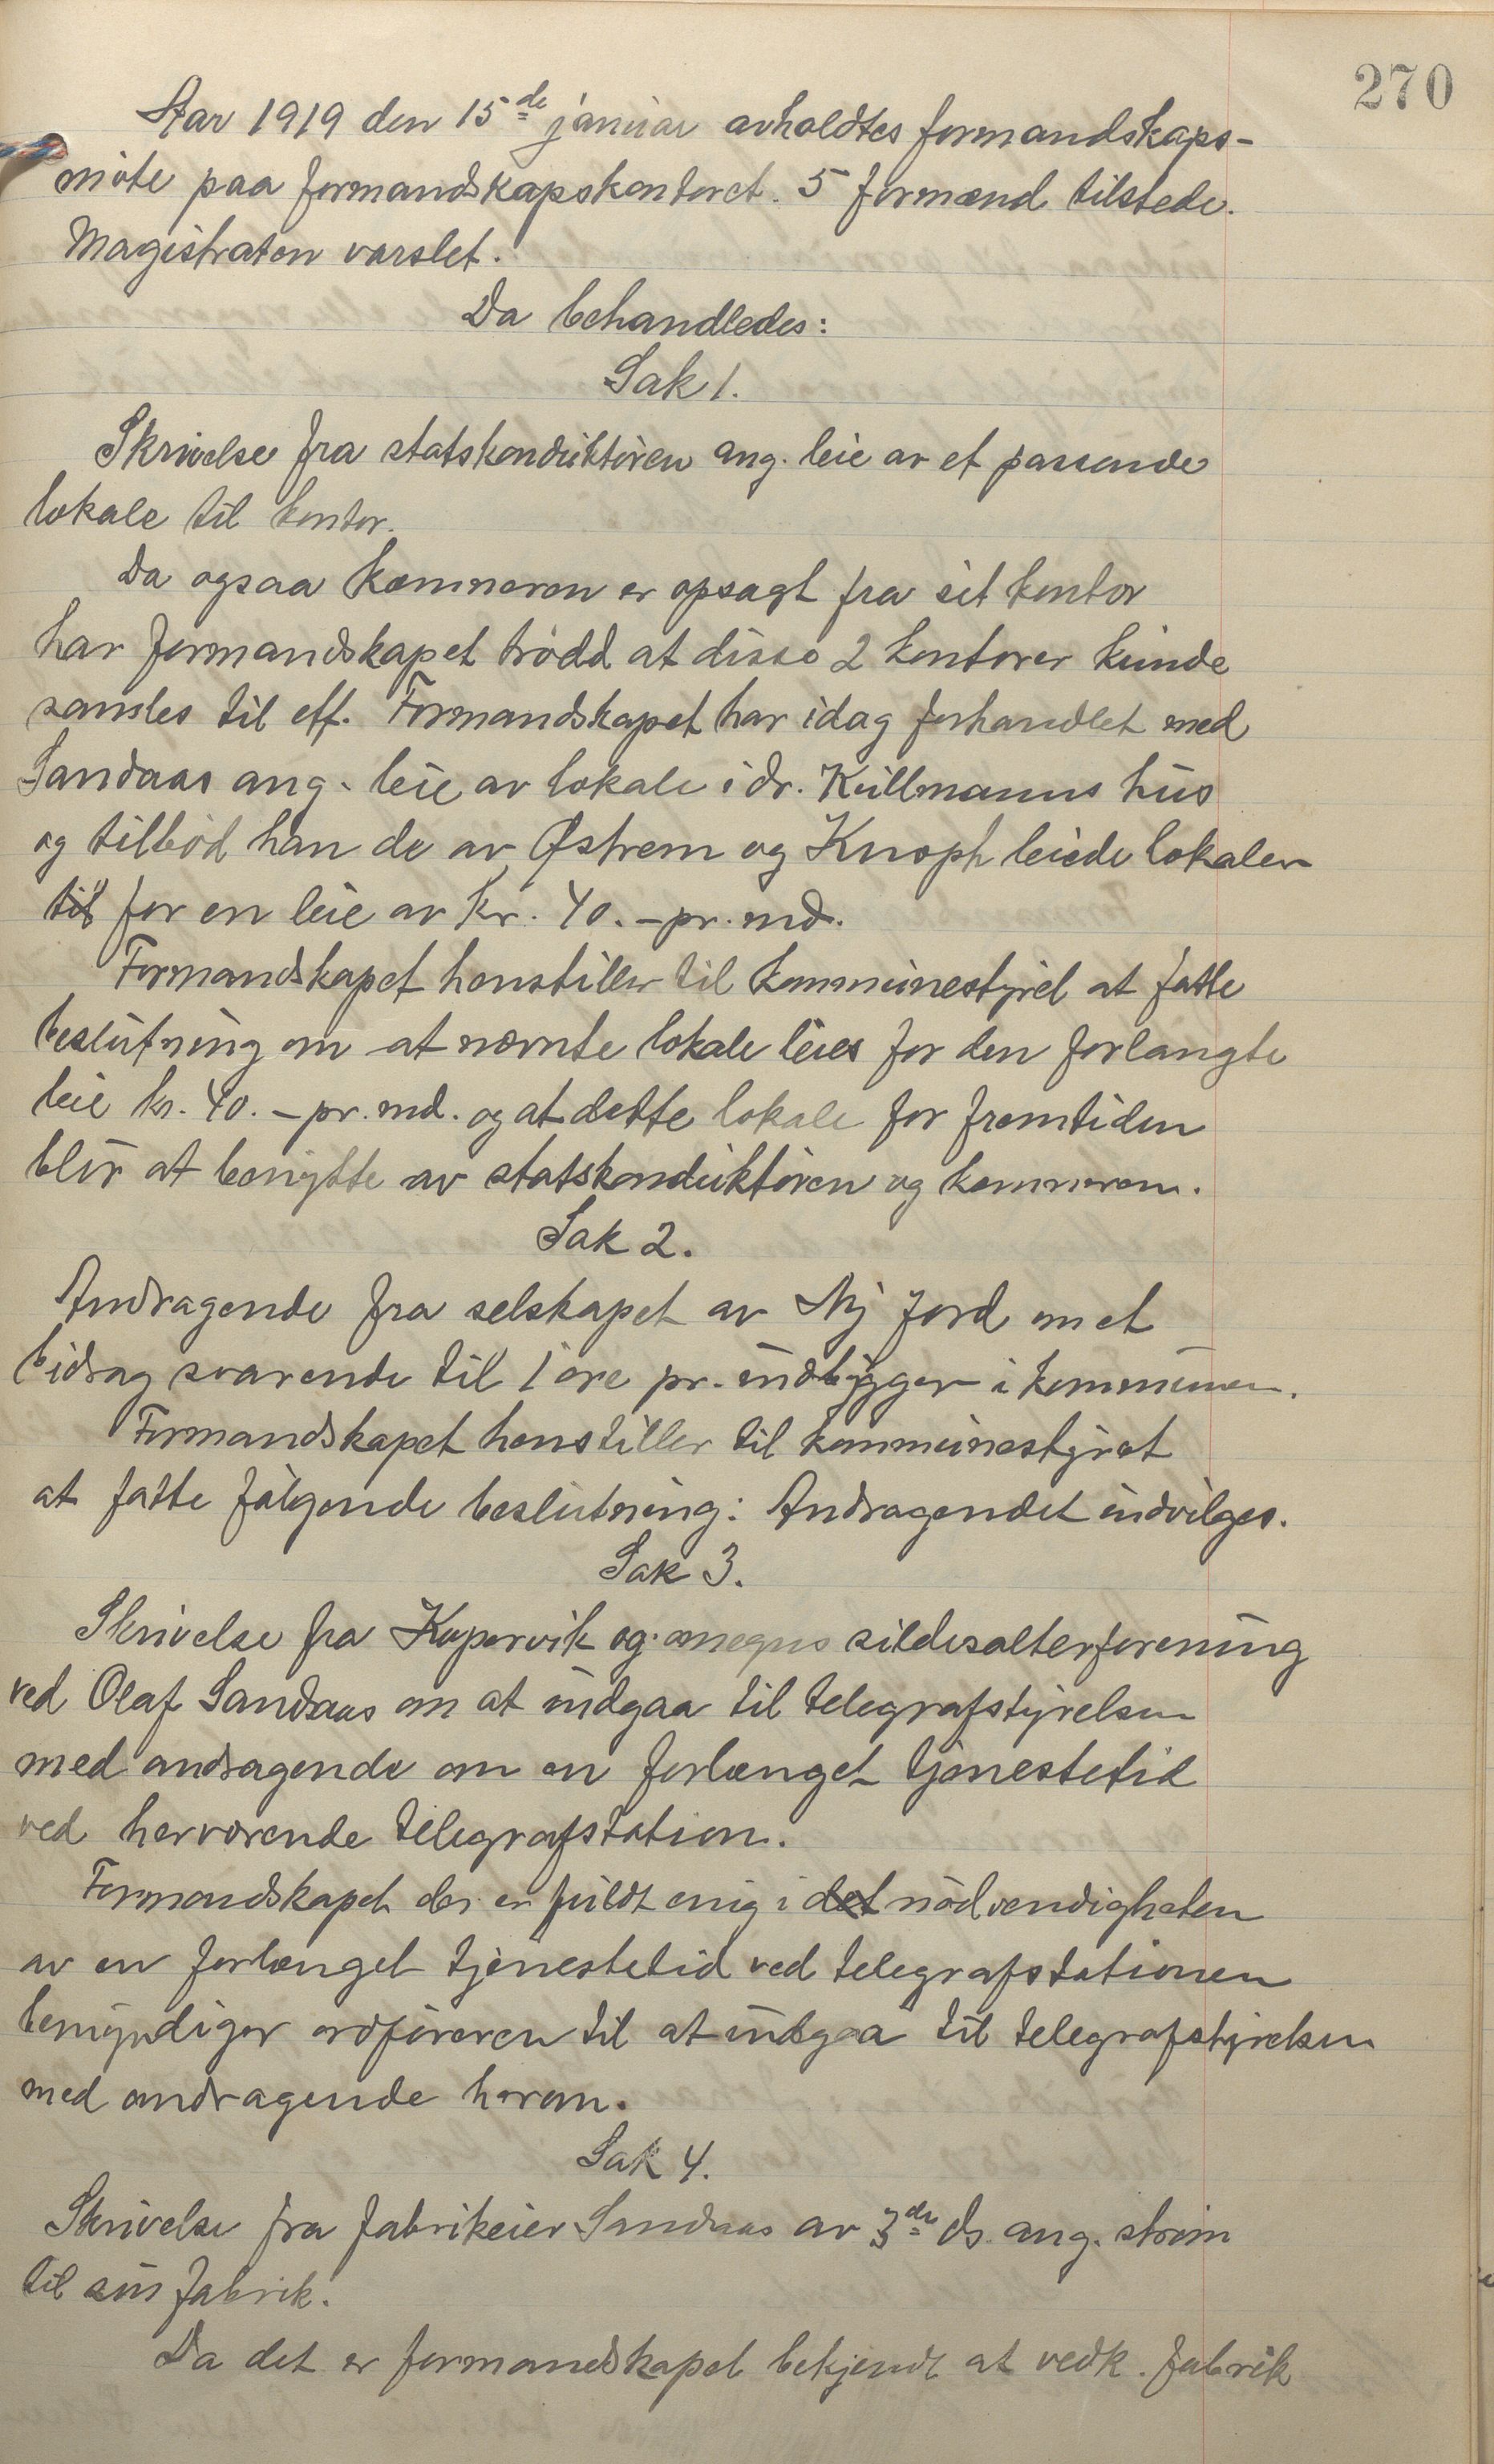 270
Aar 1919 den 15de januar avholdtes formandskaps-
møte paa formandskapskontoret. 5 formænd tilstede.
Magistraten varslet.
Da behandledes:
Sak 1.
Skrivelse fra statskonduktøren ang. leie av et passende
lokale til kontor.
Da ogsaa kæmneren er opsagt fra sit kontor
har formandskapet trodd at disse 2 kontorer kunde
samles til ett. Formandskapet har idag forhandlet med
Sandaas ang. leie av lokale i dr. Kullmanns hus
og tilbød han de av Østrem og Knoph leiede lokaler
til for en leie av kr. 40.- pr. md.
Formandskapet henstiller til kommunestyret at fatte
beslutning om at nævnte lokale leies for den forlangte
leie kr. 40.- pr. md. og at dette lokale for fremtiden
blir at benytte av statskonduktøren og kæmneren.
Sak 2.
Andragende fra selskapet av Ny Jord om et
bidrag svarende til 1 øre pr. indbygger i kommunen.
Formandskapet henstiller til kommunestyret
at fatte følgende beslutning: Andragendet indvilges.
Sak 3.
Skrivelse fra Kopervik og omegns sildesalterforening
ved Olaf Sandaas om at indgaa til telegrafstyrelsen
med andragende om en forlænget tjenestetid
ved herværende telegrafstation.
Formandskapet der er fuldt enig i det nødvendigheten
av en forlænget tjenestetid ved telegrafstationen
bemyndiger ordføreren til at indgaa til telegrafstyrelsen
med andragende herom.
Sak 4.
Skrivelse fra fabrikeier Sandaas av 3de ds. ang. strøm
til sin fabrik.
Da det er formandskapet bekjendt at vedk. fabrik